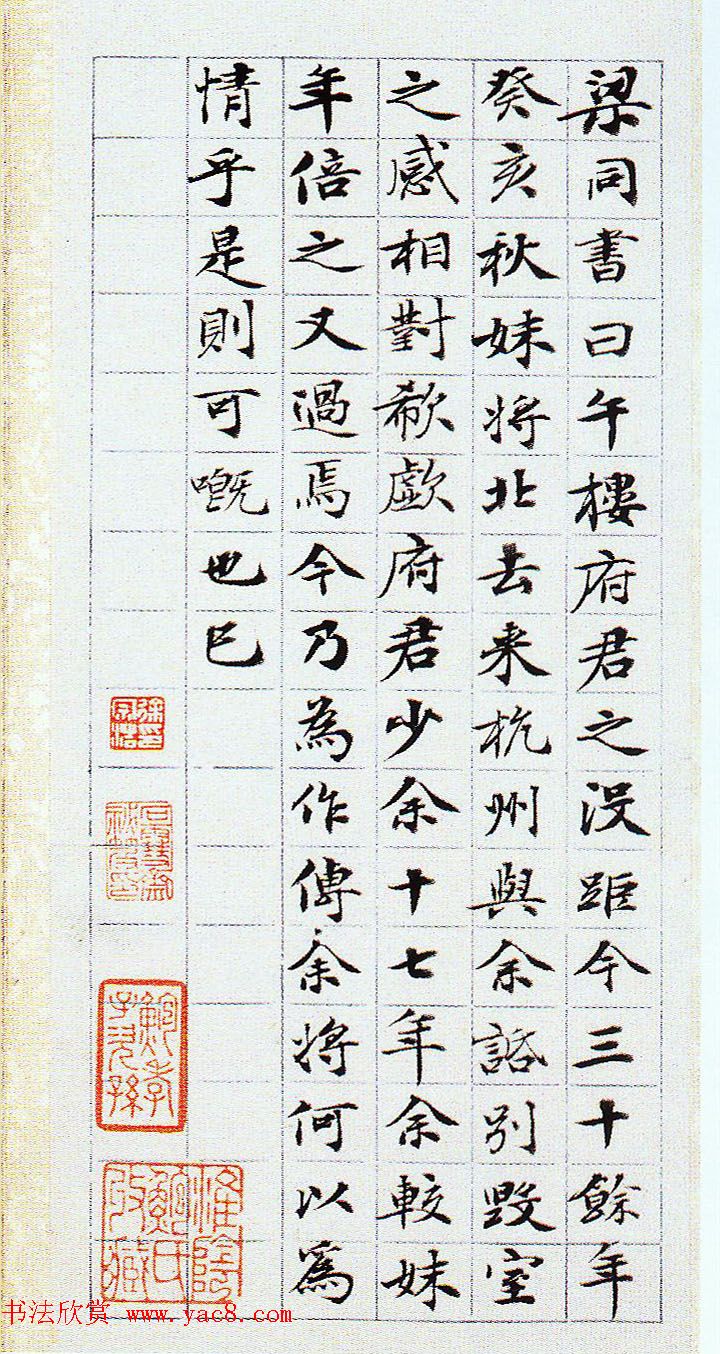 梁同書曰午樓府君之没距今三十餘年
癸亥秋妹将北去来杭州與余話别毁室
之感相對欷歔府君少余十七年余較妹
年倍之又過焉今乃為作傳余将何以爲
情乎是則可嘅也已
鮑孝子九孫
淮陰鮑氏改藏
书法欣赏 www.yac8.com